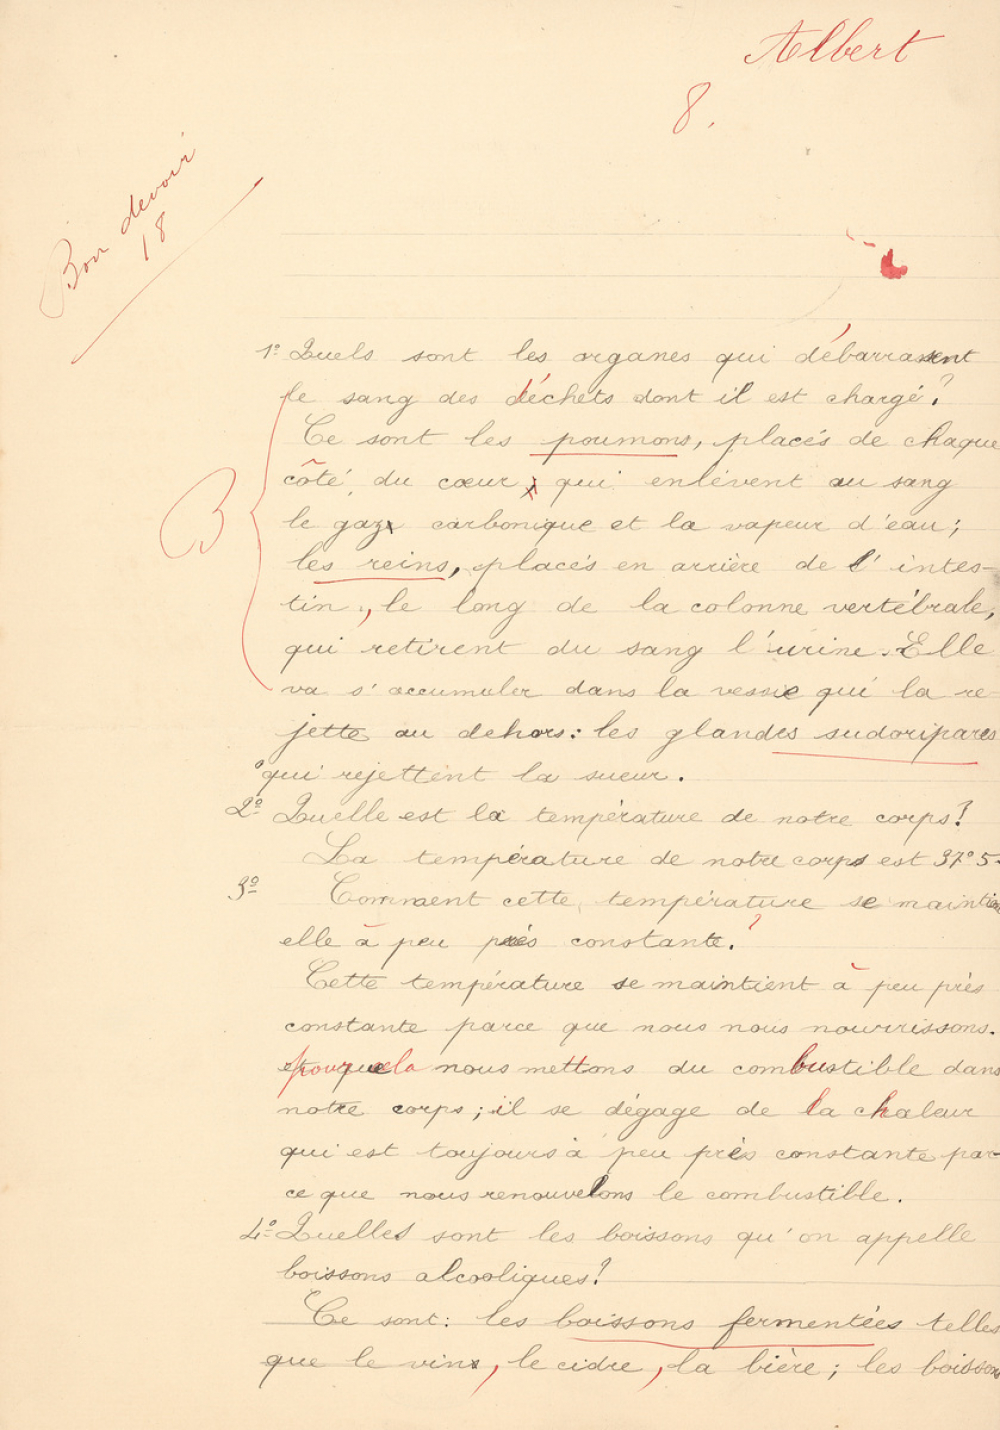 Albert
8.
Bon devoir
18
1º Quels sont les organes qui débarrassent
le sang des déchets dont il est chargé?
Ce sont les poumons, placés de chaque
côté, du cœur, qui enlèvent au sang
B
le gaz carbonique et la vapeur d'eau;
les reins, placés en arrière de l'intes-
tin, le long de la colonne vertébrale,
qui retirent du sang l'urine. Elle
va s'accumuler dans la vessie qui la re-
jette au dehors: les glandes sudoripares
qui rejettent la sueur.
2º Quelle est la température de notre corps?
La température de notre corps est 37º5.
3º Comment cette température se maintient
elle à peu près constante.?
Cette température se maintient à peu près
constante parce que nous nous nourrissons.
pour cela nous mettons du combustible dans
notre corps; il se dégage de la chaleur
qui est toujours à peu près constante par-
ce que nous renouvelons le combustible.
4º Quelles sont les boissons qu'on appelle
boissons alcooliques?
Ce sont: les boissons fermentées telles
que le vin, le cidre, la bière; les boissons